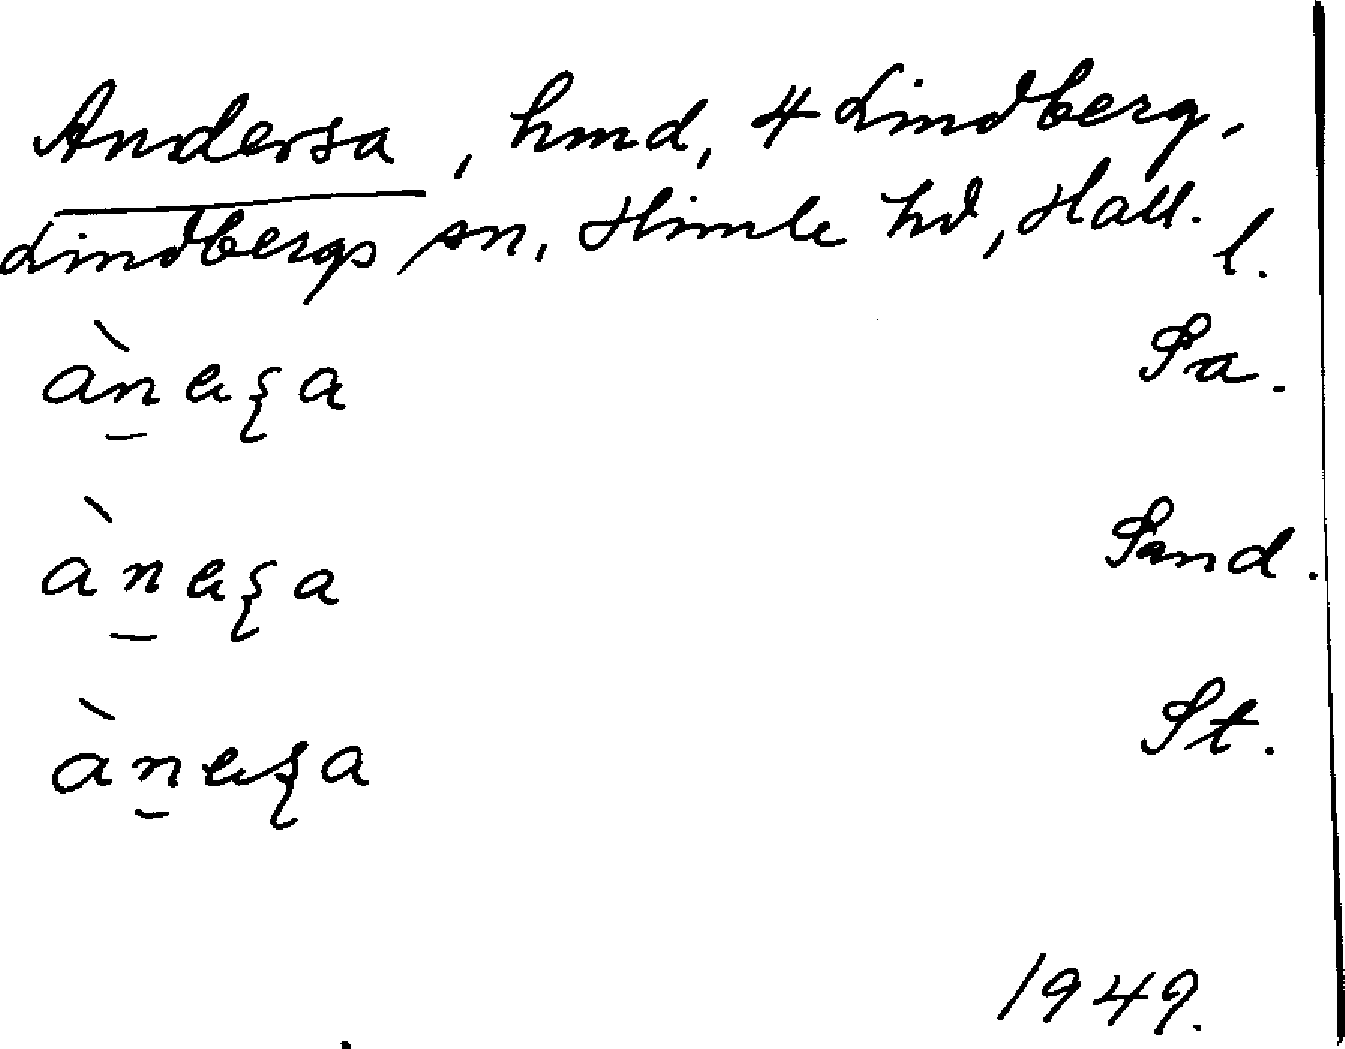 Andersa, hmd, 4 Lindberg,
Lindbergs sn, Himle hd, Hall. l.
àn̠eʂa Sa.
àn̠eʂa Sand.
àn̠eʂa St.
1949.